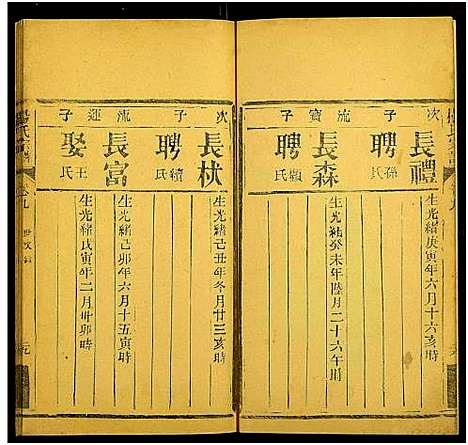 次子
長禮
聘孫氏
生光緒庚寅年六月十六亥時
流寶子
長森
聘賴氏
生光緒癸未年陸月二十六午時
次子
長栿
聘續氏
生光緒己丑年冬月廿三亥時
流運子
長富
生光緒己卯年六月十五寅時
娶王氏
生光緒戊寅年二月廿卯時